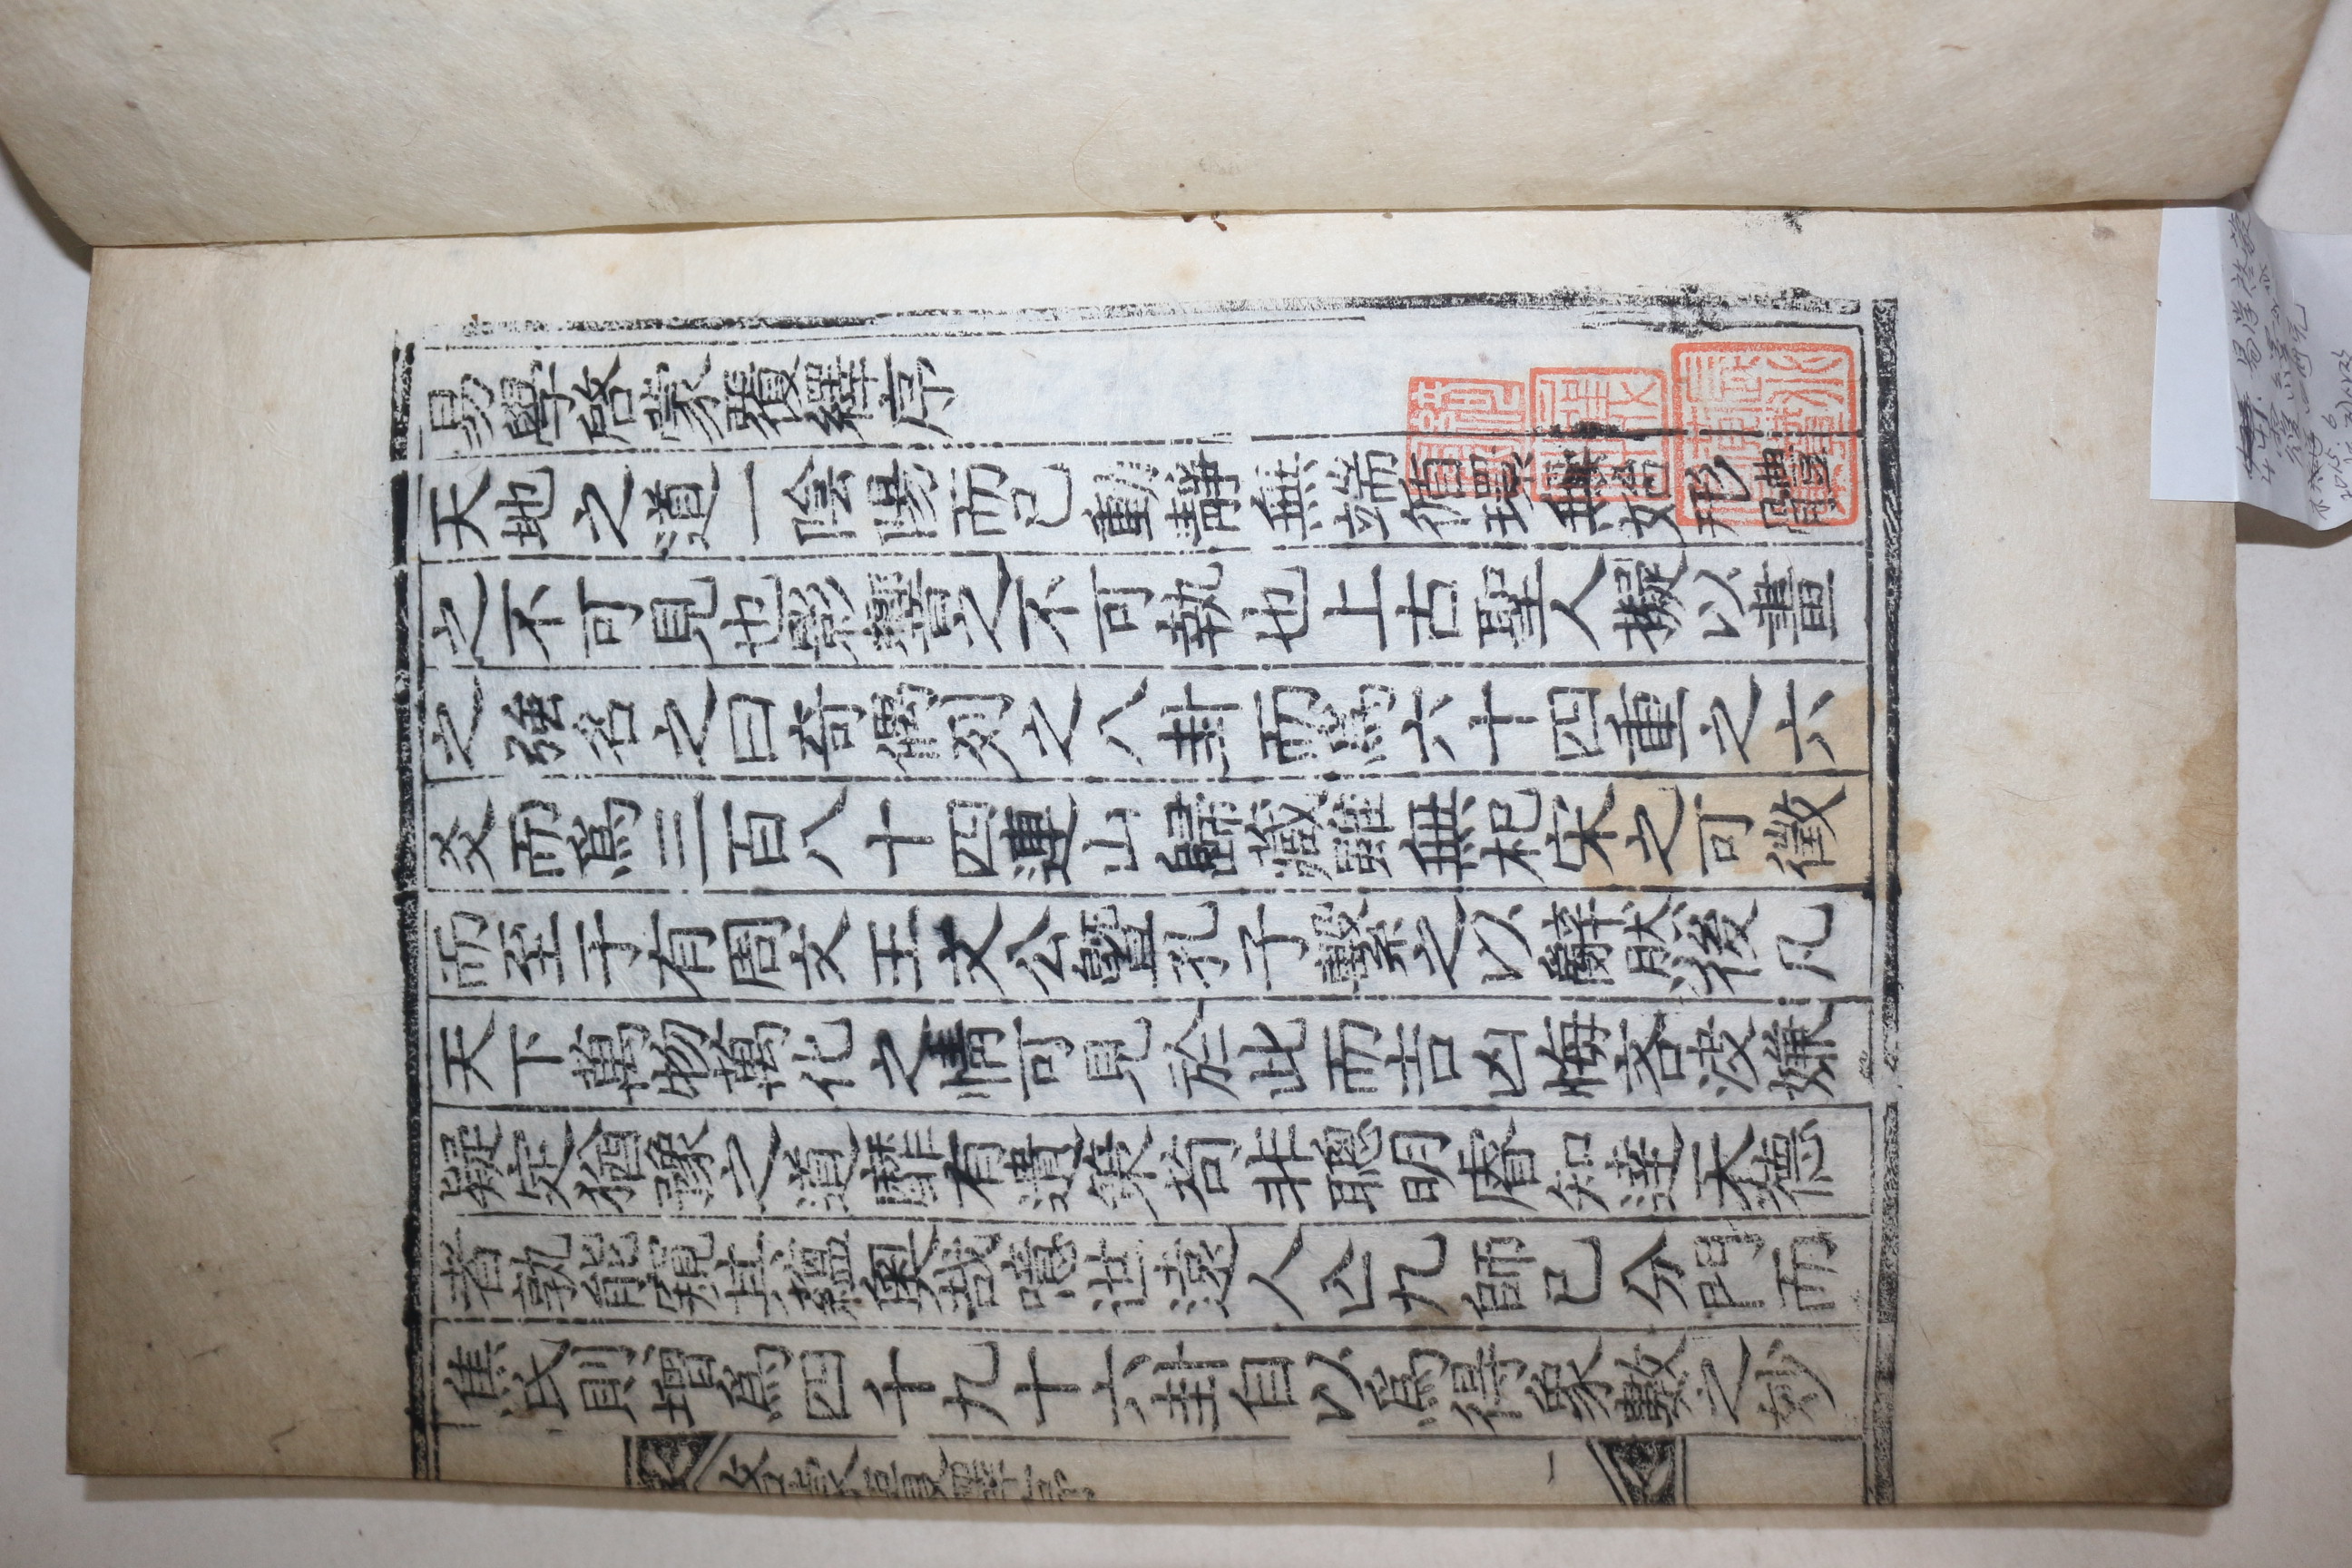 易學啓蒙覆繹序
天地之道一陰陽而已動靜無端循環無始形體
之不可見也影響之不可執也上古聖人擬以畫
之強名之曰奇偶列之八卦而爲六十四重之六
爻而爲三百八十四連山歸藏雖無杞宋之可徵
而至于有周文王文公曁孔子繫之以辭然後凡
天下萬物萬化之情可見於此而吉凶悔吝决嫌
疑定猶豫之道靡有遺策苟非聰明睿知達天德
者孰能窺其蘊奧哉噫世遠人亡九師已分門而
焦氏則增爲四千九十六卦自以爲得象數之妙
一